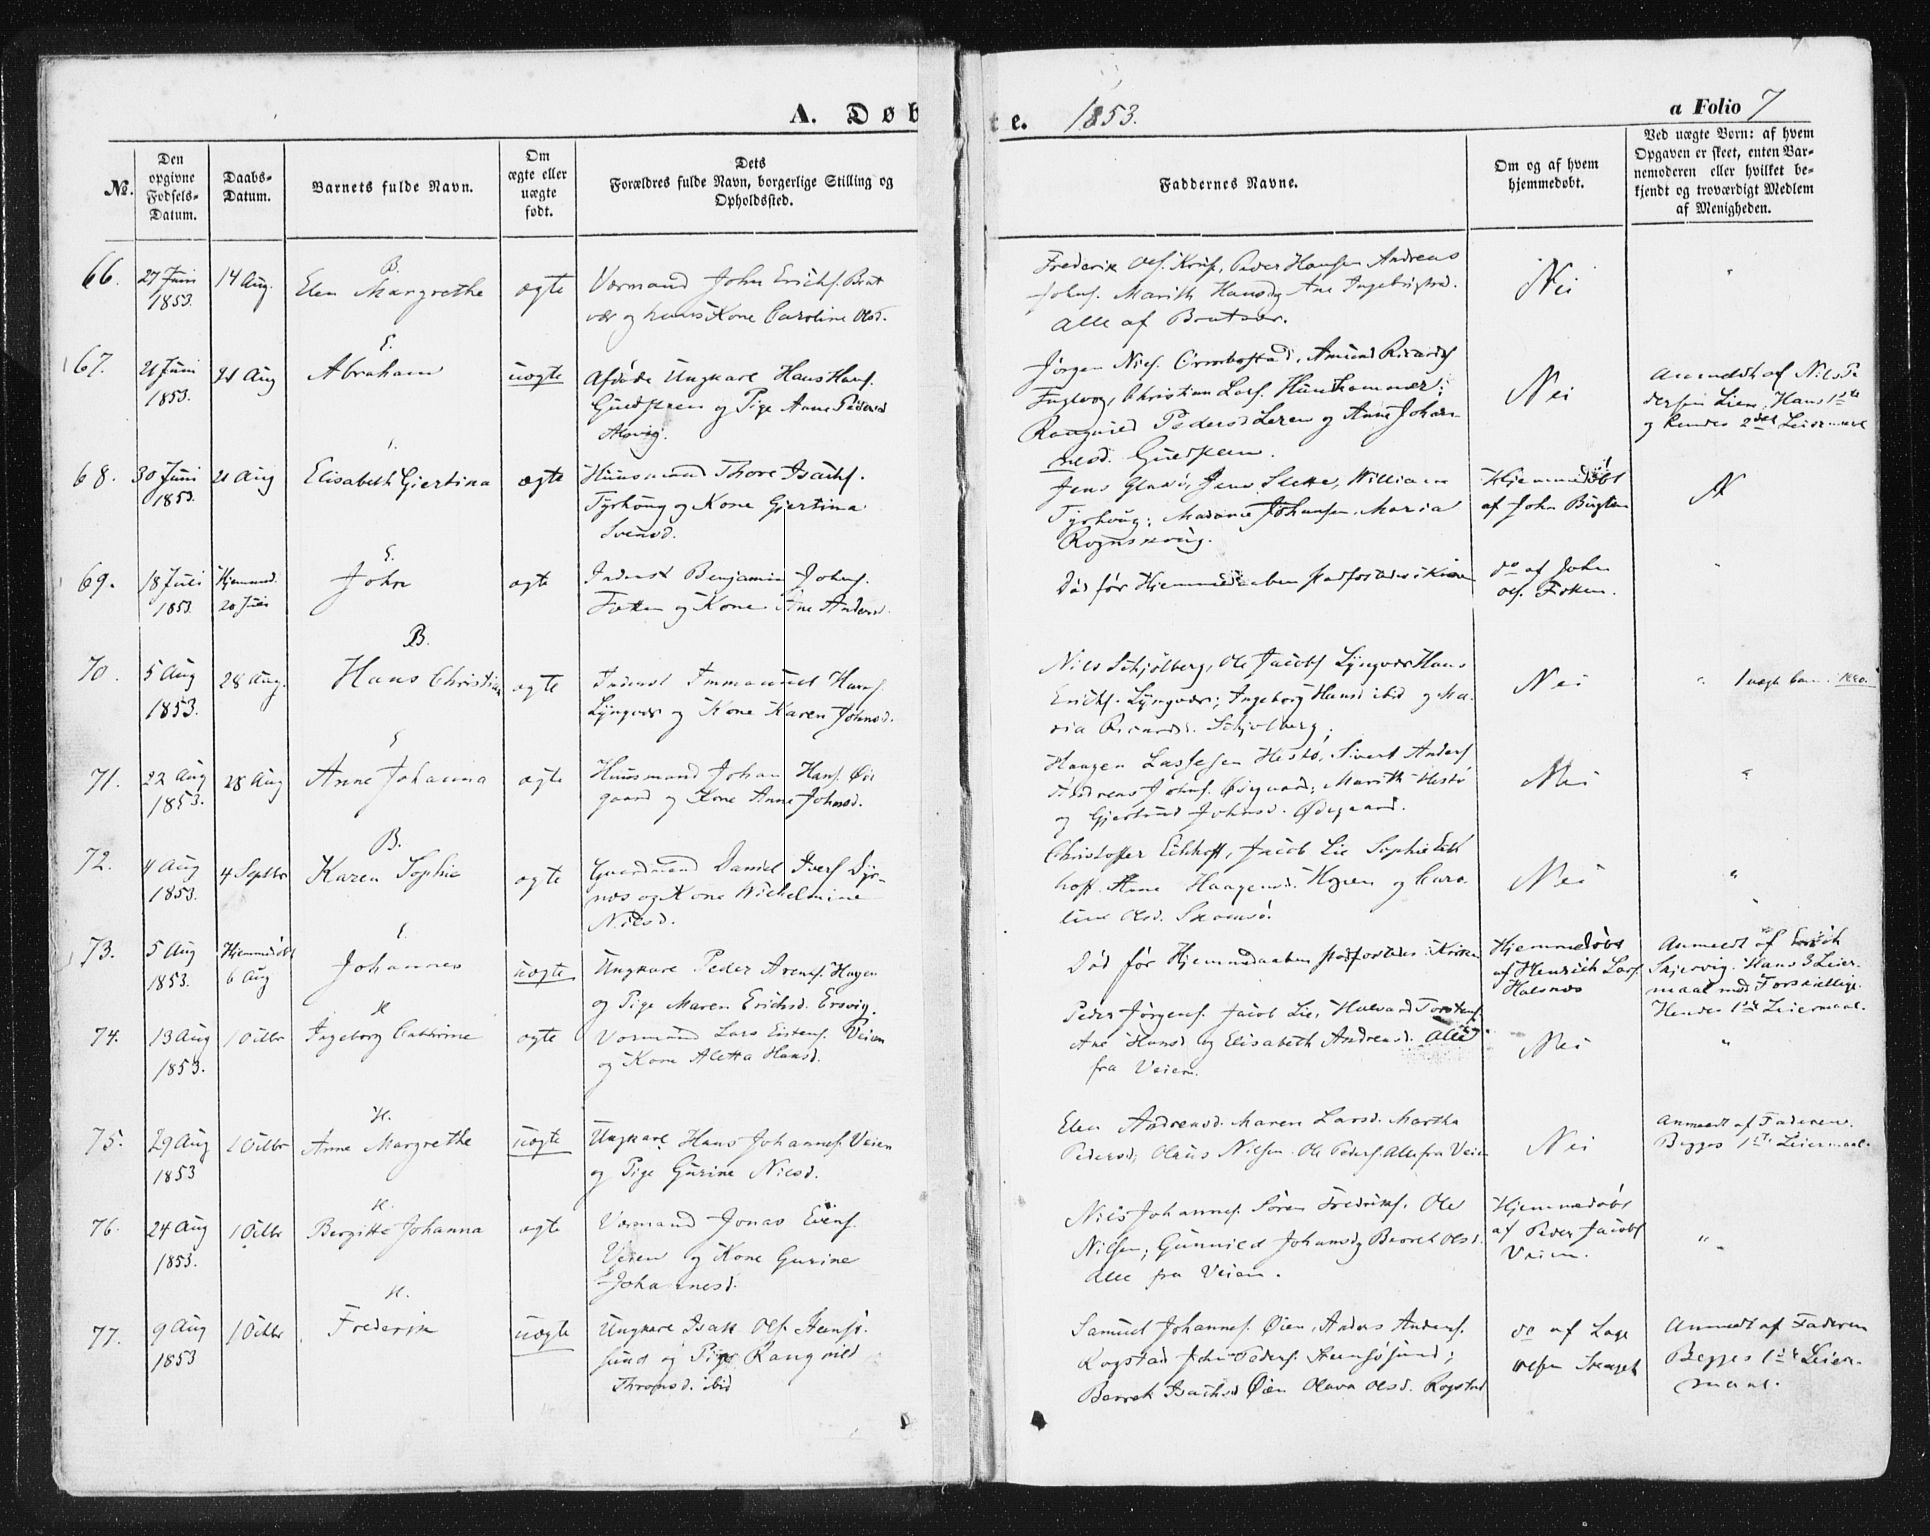 A. Døbte. 1853. a Folio 7
No. Den opgivne Fødsels-Datum. Daabs-Datum. Barnets fulde Navn. Om ægte eller uægte født. Dets Forældres fulde Navn, borgerlige Stilling og Opholdssted. Faddernes Navne. Om og af hvem hjemmedøbt. Ved uægte Børn: af hvem Opgaven er skeet, enten Barnemoderen eller hvilket bekjendt og troværdigt Medlem af Menigheden.
B.
66. 27 Juni 1853. 14 Aug. Elen Margrethe ægte Vormand John Erichs. Brat
vær og hans Kone Caroline Olsd.
Frederik Ols. Peder Hansen Andreas
Johns. Marith Hansd Ane Ingebrigtsd.
Alle af Bratvær.
Nei "
E.
67. 21 Juni 1853. 21 Aug Abraham uægte Afdøde Ungkarl Hans Hans.
og Pige Anne Pedersd
Jørgen Niels. Ormbostad, Amund Ricards
Fuglvog, Christian Lars.
Rangnild Pedersd Leren og Anne Johan
nesd.
Nei
Anmeldt af Nils Pe
dersen Lien. Hans 1ste
og hendes 2det Leiermaal
68. 30 Juni 1853. 21 Aug Elisabeth Giertina ægte Huusmand Thore Isachs.
Tyrhoug og Kone Gjertina
Svensd.
Jens Jens Slette, William
Tyrhoug; Madame Johansen, Maria
Hjemmedøbt
af John
N
E.
69. 18 Juli 1853. Hjemmed. 20 Juli John ægte Inderst Benjamin Johns.
og Kone Ane Andersd.
Død før Hjemmedaaben stadfæstedes i Kirken
do af John
Ols.
"
B.
70. 5 Aug 1853. 28 Aug. Hans Christian ægte Inderst Immanuel Hans.
Lyngvær og Kone Karen Johnsd.
Nils Schjølberg, Ole Jacobs Lyngvær Hans
Erichs. Lyngvær; Ingeborg Hansd ibid og Ma
ria Ricardsd. Schjølberg;
Nei
"
E
71. 22 Aug 1853. 28 Aug Anne Johanna ægte Huusmand Johan Hans. Øde
gaard og Kone Anne Johnsd.
Haagen Lassesen Hestø, Sivert Anders
Andreas Johns. Ødegaard; Marith Hestø
og Gjertrud Johnsd. Ødegaard.
Nei "
B.
72. 4 Aug 1853. 4 Septbr Karen Sophie ægte Gaardmand Daniel Ivers Dyr-
næs og Kone Wilhelmine
Nilsd.
Christoffer Eckhoff, Jacob Lie Sophie Eck
hoff. Ane Haagensd. Hopen og Caro
line Olsd.
Nei "
E.
73. 5 Aug 1853. Hjemmedøbt 6 Aug Johannes uægte Ungkarl Peder Arents. Hagen
og Pige Maren Erichsd. Ersvig.
Død før Hjemmedaaben stadfæstedes i Kirken
Hjemmedøbt
af Henrich Lars
Halsnæs
Anmeldt af
Skjervig. Hans 3 Leier-
maal med Forskjellige.
Hendes 1ste Leiermaal.
H
74. 13 Aug 1853. 1 Octbr Ingeborg Cathrine ægte Vormand Lars Veien
og Kone Aletta Hansd.
Peder Jørgens. Jacob Lie, Halvard Torstens.
Ane Hansd og Elisabeth Andreasd. Alle
fra Veien.
Nei "
H.
75. 29 Aug 1853 1 Octbr Anne Margrethe uægte Ungkarl Hans Johannes. Veien
og Pige Gurine Nilsd.
Elen Andreasd. Maren Larsd. Martha
Pedersd; Olaus Nilsen. Ole Peders. Alle fra Veien
Nei
Anmeldt af Faderen.
Begges 1ste Leiermaal.
H.
76. 24 Aug 1853. 1 Octbr Bergitte Johanna ægte Vormand Jonas
Veien og Kone Gurine
Johannesd.
Nils Johannes. Søren Frederiks. Ole
Nilsen; Gunnild Johansd og Berret Olsd.
Alle fra Veien.
Hjemmedøbt
af Peder Jacobs
Veien.
"
H.
77. 9 Aug 1853 1 Octbr Frederik uægte Ungkarl Isak Ols.
sund og Pige Rangnild
ibid
Samuel Johannes. Øien, Anders Anders.
Rogstad John Peders.
Berret Isachsd Øien Olava Olsd. Rogstad
do af Lage
Olsen
Anmeldt af Faderen
Begges 1ste Leier-
maal.